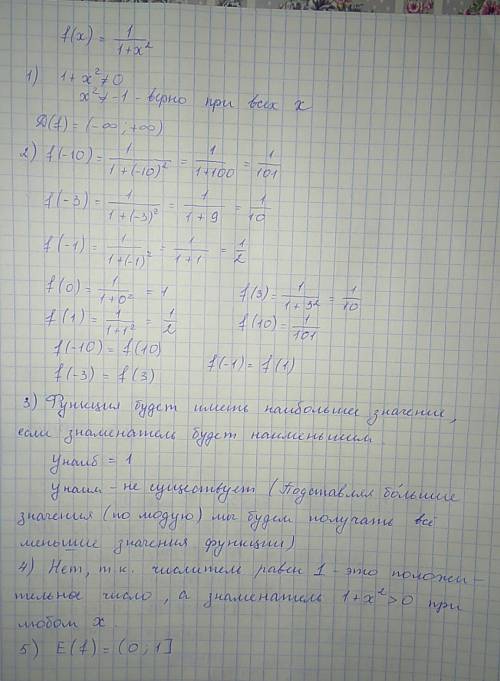 f(x) = 1/(1+x²)
1) 1+x² ≠ 0
x² ≠ -1 - верно при всех x
D(f) = (-∞; +∞)
2) f(-10) = 1/(1+(-10)²) = 1/(1+100) = 1/101
f(-3) = 1/(1+(-3)²) = 1/(1+9) = 1/10
f(-1) = 1/(1+(-1)²) = 1/(1+1) = 1/2
f(0) = 1/(1+0²) = 1 f(3) = 1/(1+3²) = 1/10
f(1) = 1/(1+1²) = 1/2 f(10) = 1/101
f(-10) = f(10)
f(-3) = f(3) f(-1) = f(1)
3) Функция будет иметь наибольшее значение,
если знаменатель будет наименьшим.
yнаиб = 1
yнаим - не существует (Подставляя бо́льшие
значения (по модую) мы будем получать всё
меньшие значения функции)
4) Нет, т.к. числитель равен 1 - это положи-
тельное число, а знаменатель 1+x² > 0 при
любом x.
5) E(f) = (0; 1]